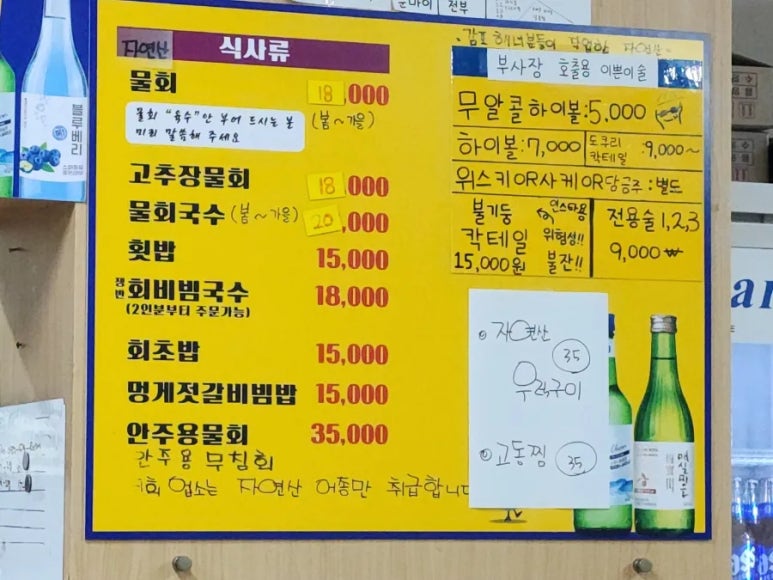 전부
자연산 식사류
물회 18,000
물회 "육수"안 부어 드시는 분
미리 말씀해 주세요
(봄~가을)
고추장물회 18,000
물회국수 (봄~가을) 20,000
횟밥 15,000
쟁반 회비빔국수 18,000
(2인분부터 주문가능)
회초밥 15,000
멍게젓갈비빔밥 15,000
안주용물회 35,000
안주용 무침회
업소는 자연산 어종만 취급합니다
감포 해녀분들이 작업한 자연산
부사장 호출용 이쁜이술
무알콜하이볼:5,000
하이볼:7,000
도쿠리
칵테일 :9,000~
위스키OR사케OR담금주:별도
불기둥
칵테일
15,000원
인스타용
위험성!!
불잔!!
전용술1,2,3
9,000₩
자연산
35
우럭구이
고동찜 35
블루베리
매실마을